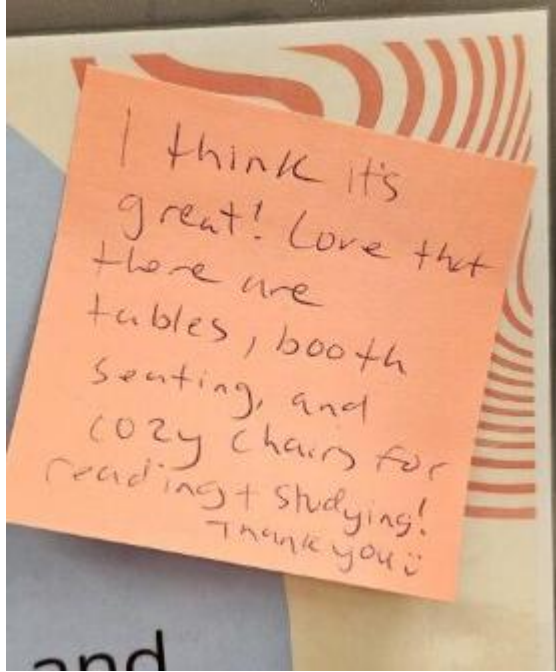 I think it's
great! Love that
there are
tables, booth
seating, and
cozy chairs for
reading + studying!
Thank you ü
and